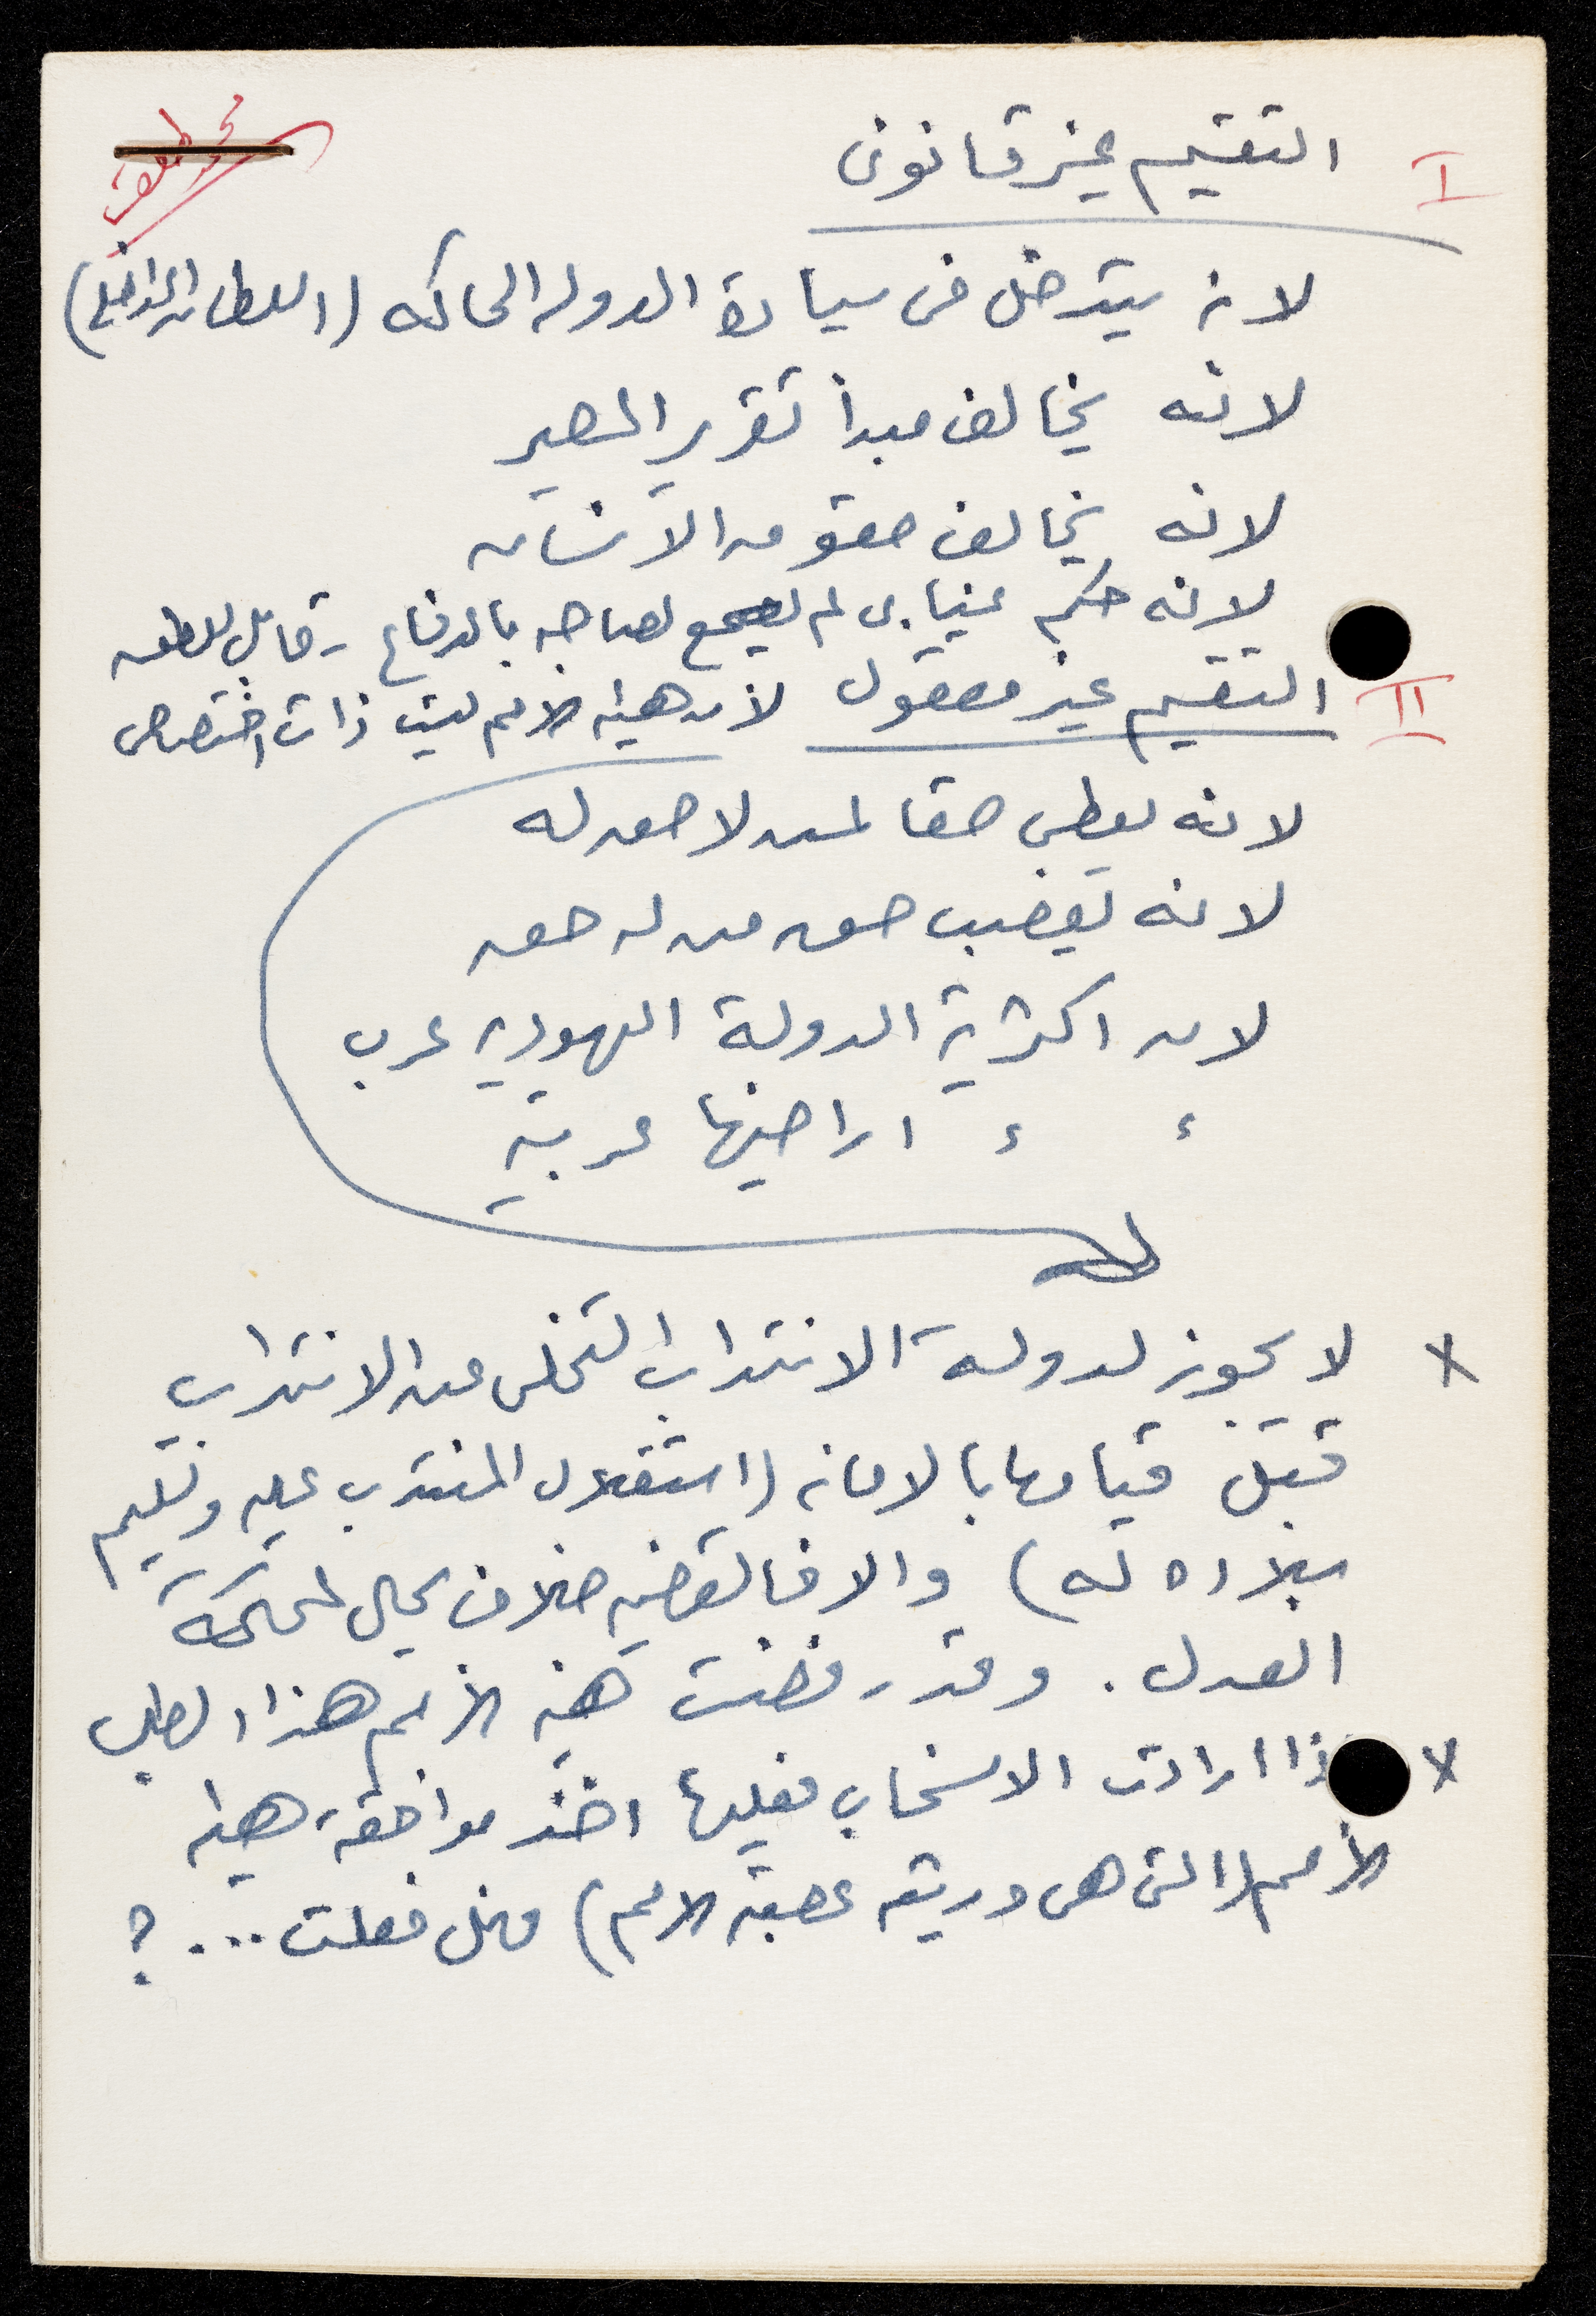 I التقسيم غير قانونى
لانه يتدخل فى سيادة الدوله الحاكمه (السلطان الداخلى)
لانه يخالف مبدأ تقرير المصير
لانه يخالف حقوق الانسان
لانه حكم غيابى لم يسمح لصاحبه بالدفاع - قابل للطعن
II التقسيم غير معقول لان هيئه الأمم ليست ذات اختصاص
لانه يعطى حقا لمن لا حق له
لانه يغضب حق من له حق
لان اكثرية الدولة اليهوديه عرب
ء ء اراضيها عربية
x لا يجوز لدولة الانتداب التخلى عن الانتداب
قبل قيامها بالامانه (استقلال المنتدب عليه وتسليم
بلاده له) والا فالقضيه خلاف يحال لمحكمة
العدل. وقد رفضت هيئه الأمم هذا الطلب
x اذا ارادت الانسحاب فعليها اخذ موافقة هيئه
الأمم (التى هى وريثه عصبة الامم) فهل فعلت ...؟